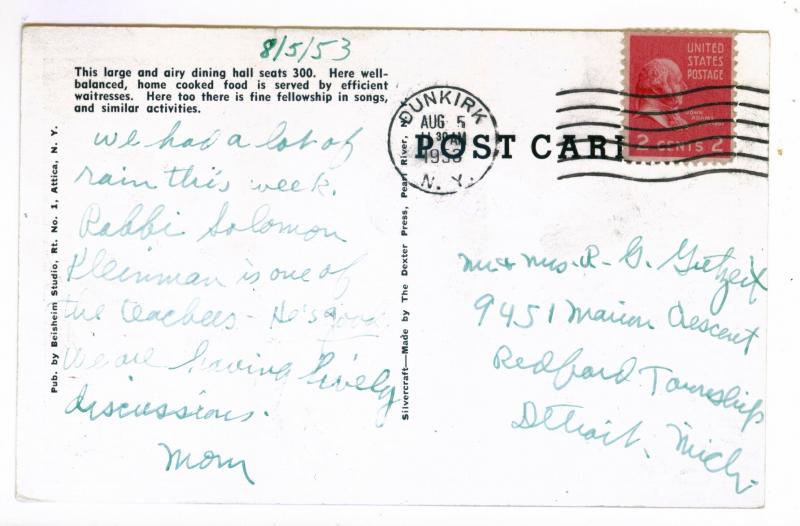 8/5/53
This large and airy dining hall seats 300. Here well-
balanced, home cooked food is served by efficient
waitresses. Here too there is fine fellowship in songs,
and similar activities.
We had a lot of
rain this week.
Rabbi Solomon
Kleinman is one of
the teachers - He's good.
We are having lively
discussions.
Mom
Pub. by Beisheim Studio, Rt. No. 1, Attica, N. Y.
Silvercraft—Made by The Dexter Press, Pearl River, N.
DUNKIRK
AUG 5
11 30 AM
1953
N. Y.
POST CAR
UNITED
STATES
POSTAGE
JOHN
ADAMS
2 CENTS 2
Mr + Mrs. R- G. Gutzeit
9451 Marion Crescent
Redford Township
Detroit, Mich-